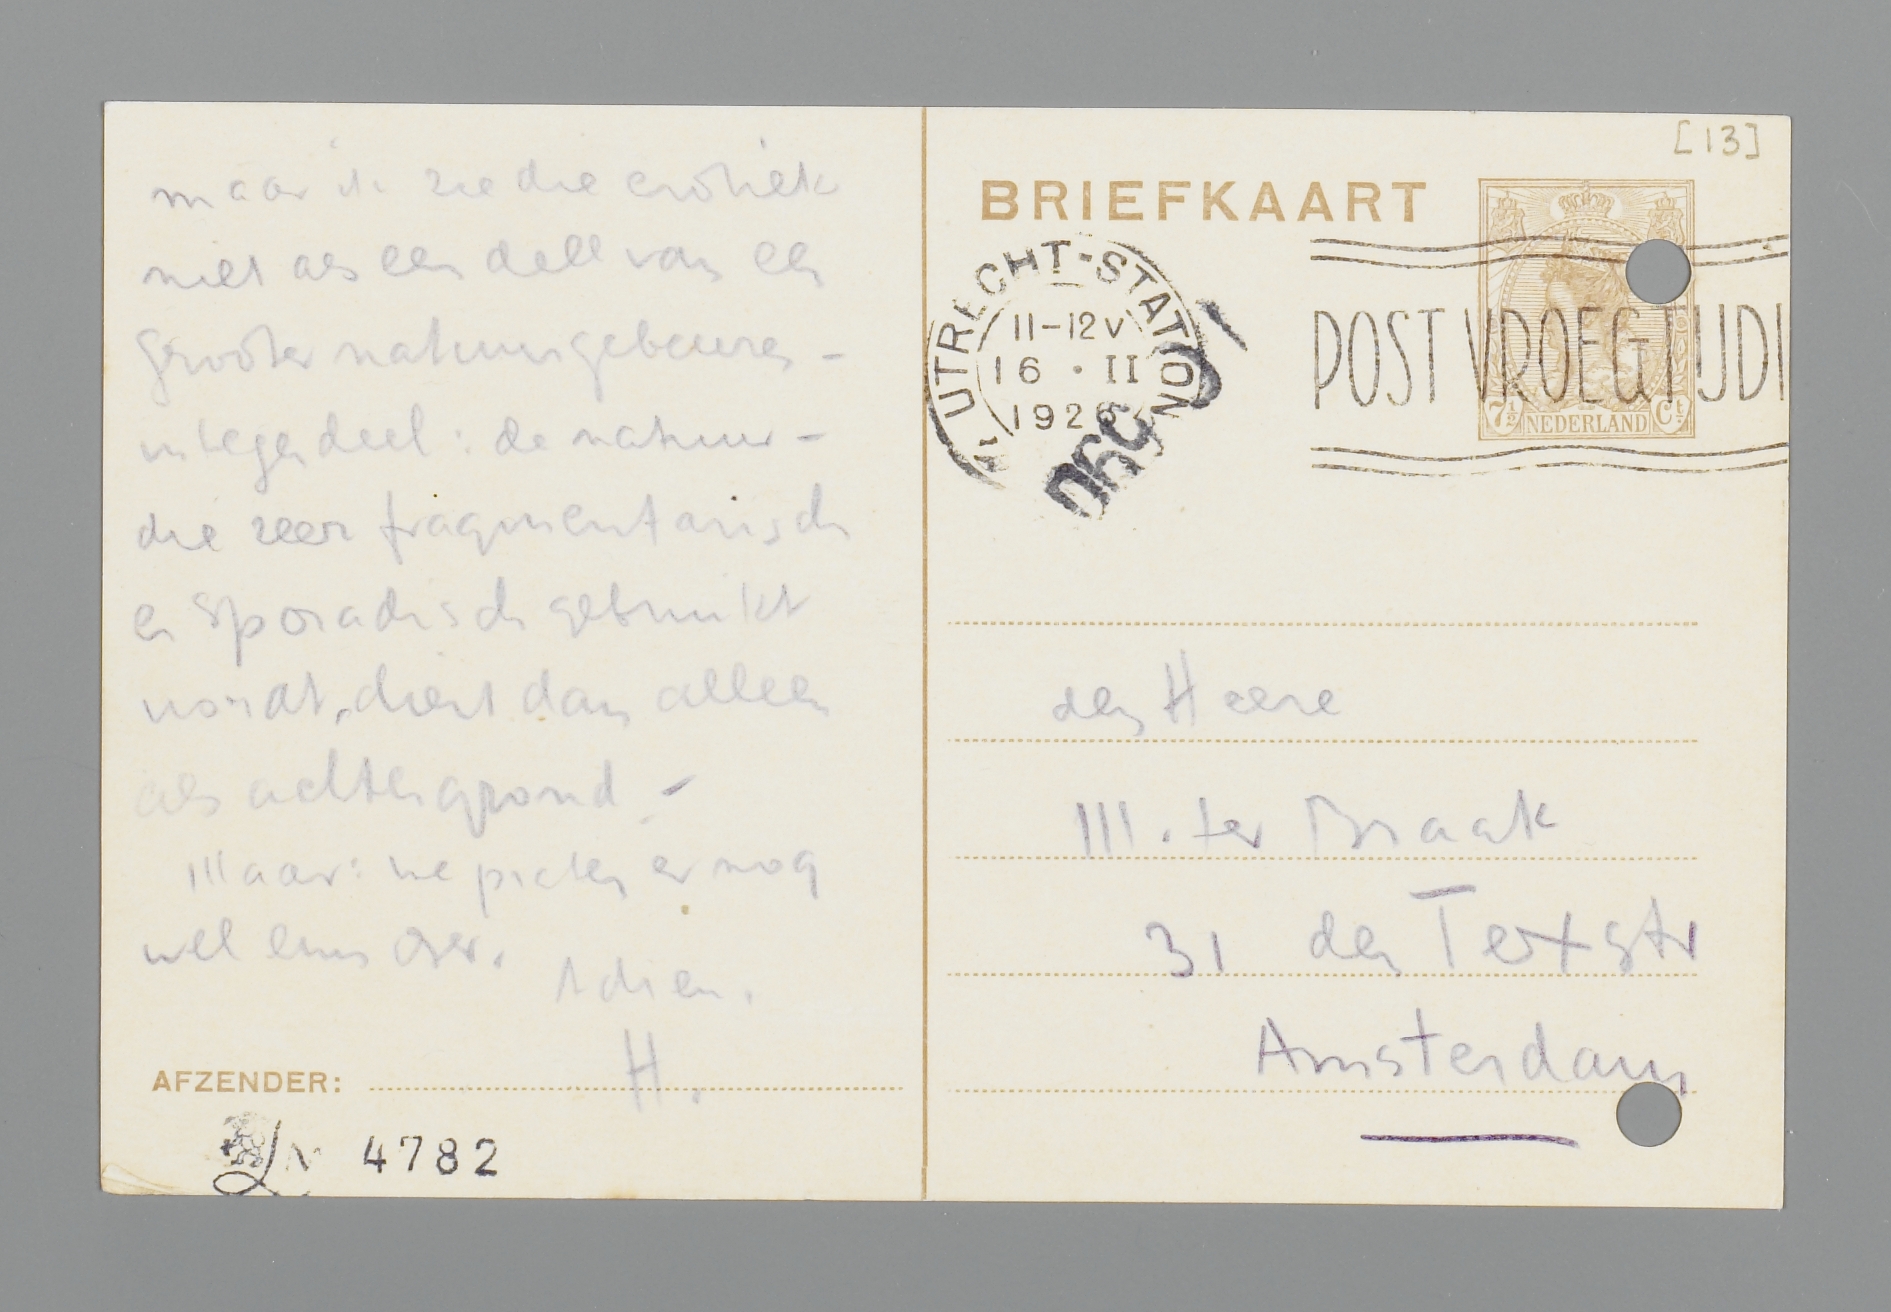 maar ik zie die erotiek
niet als een deel van een
grooter natuurgebeuren –
integendeel: de natuur –
die zeer fragmentarisch
en sporadisch gebruikt
wordt, dient dan alleen
als achtergrond. –
Maar: we praten er nog
wel eens over.
Adieu.
H.
AFZENDER:
4782
[13]
BRIEFKAART
UTRECHT-STATION
11-12V
16 · II
1926
POST VROEGTIJDI
7½ NEDERLAND Ct
den Heere
M. ter Braak
31 den Texstr
Amsterdam